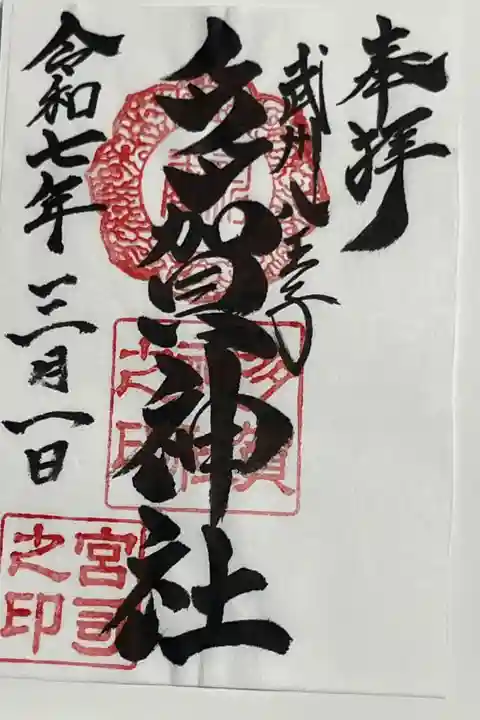 奉拝
武州八王子
多賀神社
令和七年三月一日
多賀
神社
之印
宮司
之印